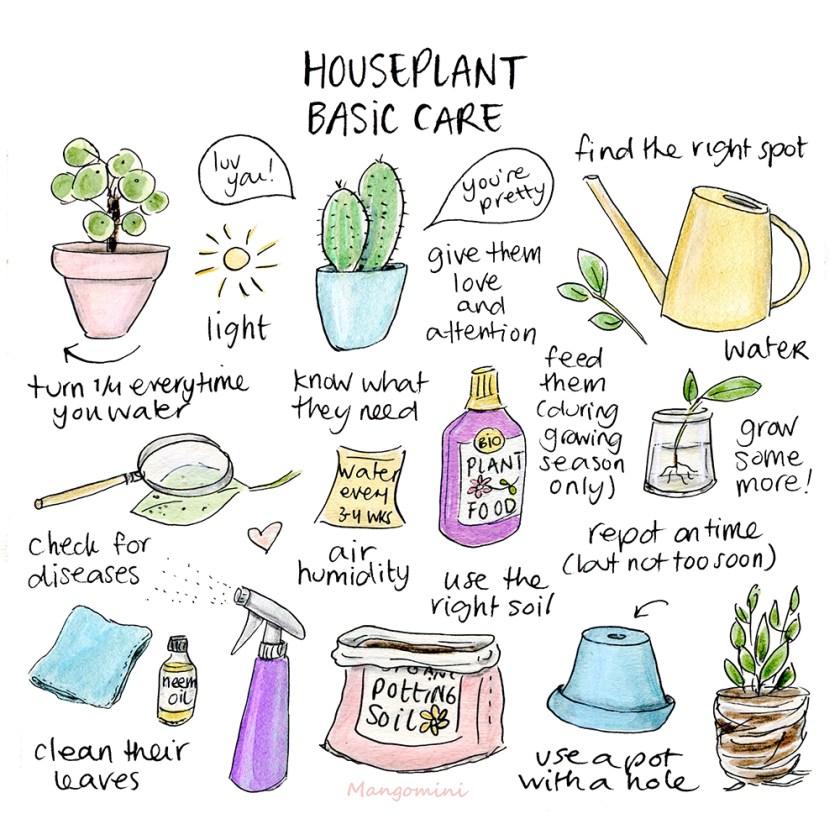 HOUSEPLANT
BASIC CARE
luv
you!
you're
pretty
find the right spot
light
give them
love
and
attention
water
turn 1/4 everytime
you water
know what
they need
feed
them
(during
growing
season
only)
BIO
PLANT
FOOD
grow
some
more!
water
every
3-4 wks
check for
diseases
air
humidity
use the
right soil
repot on time
(but not too soon)
neem
oil
POTTING
SOIL
clean their
leaves
use a pot
with a hole
Mangomini